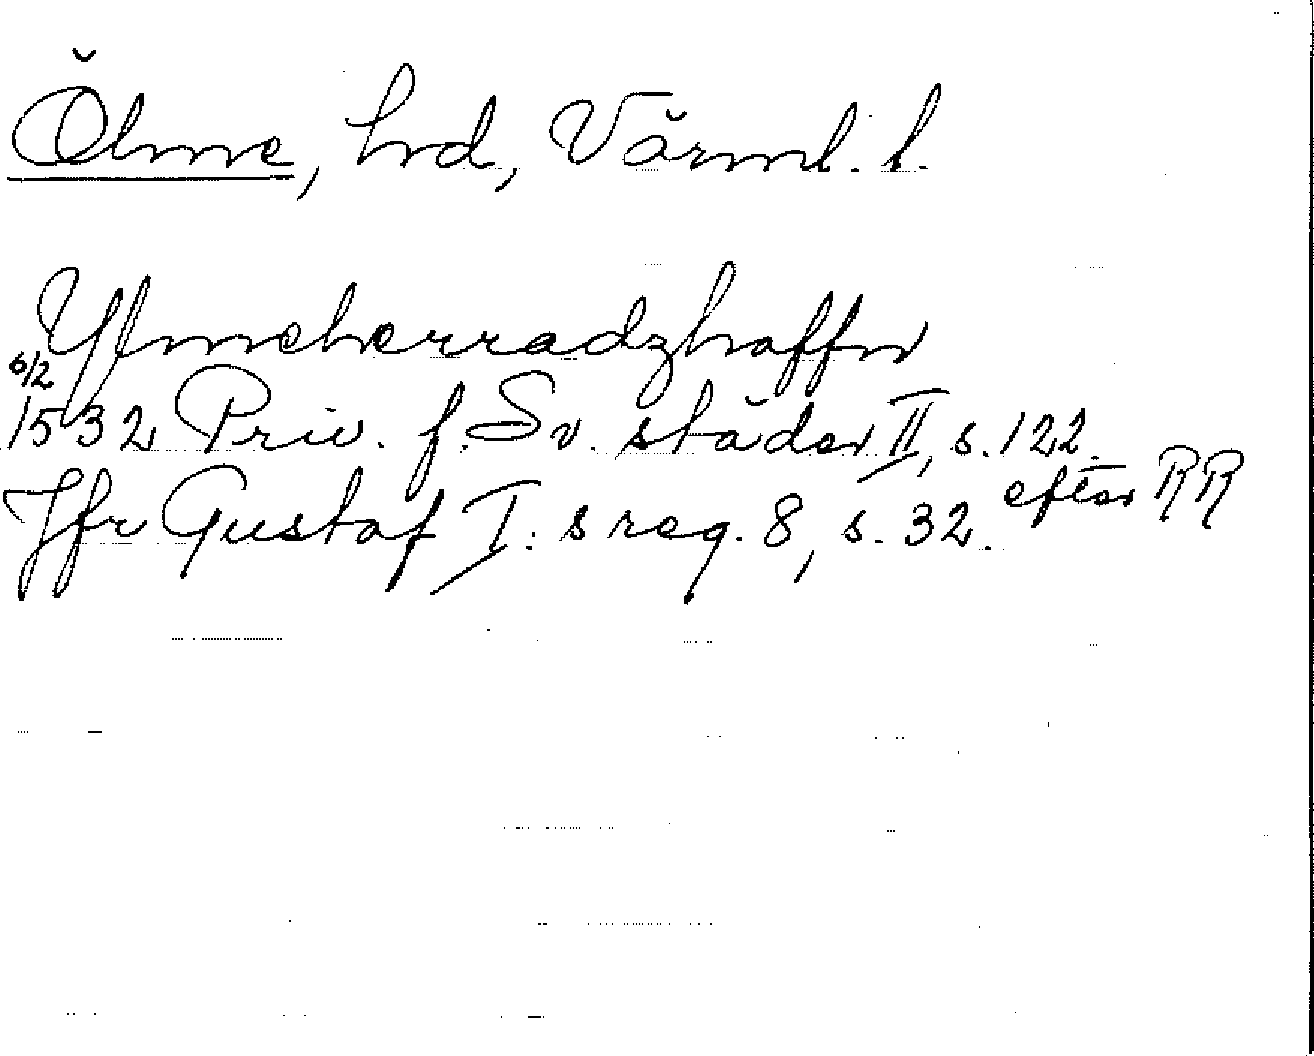 Ölme, hrd, Värml. l.
Ylmeherradzhaffn
6/2
1532 Priv. f. Sv. städer II, s. 122.
Jfr Gustaf I:s reg. 8, s. 32. efter RR